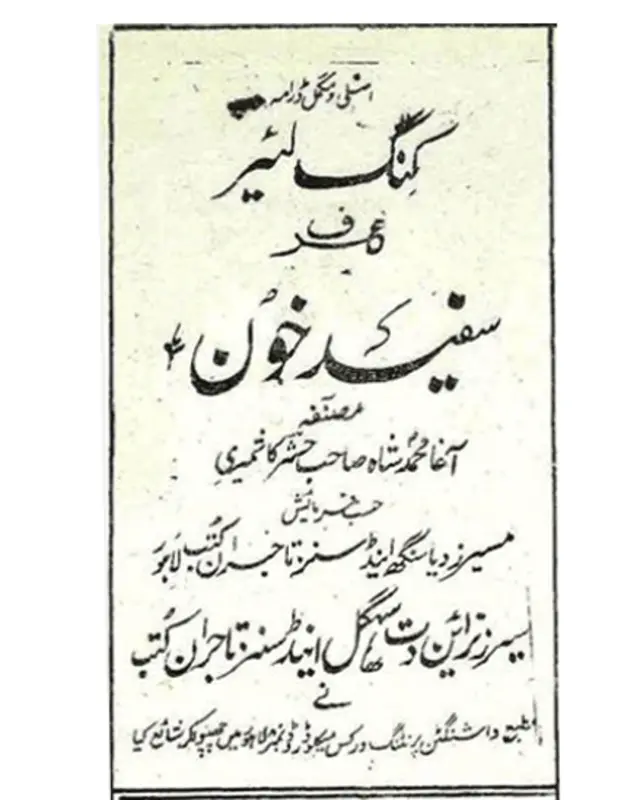 اصلی و مکمل ڈرامہ
کنگ لیئر
عرف
سفید خون
مصنفہ
آغا محمد شاہ صاحب حشر کاشمیری
حسب فرمایش
میسرز دیا سنگھ اینڈ سنز تاجران کتب لاہور
میسرز نرائن دت سہگل اینڈ سنز تاجران کتب
نے
مطبع واشنگٹن پرنٹنگ ورکس میکلوڈ روڈ لاہور میں چھپوا کر شائع کیا